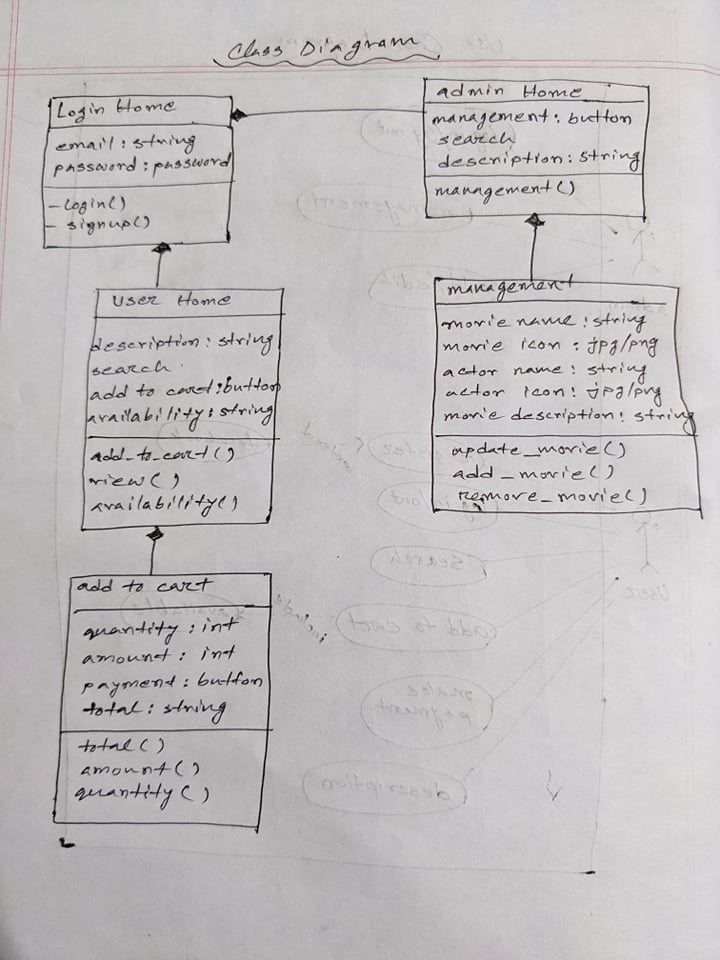 Class Diagram
Login Home
email : string
password : password
- login()
- signup()
admin Home
management : button
search
description : string
management()
User Home
description : string
search
add to cart : button
availability : string
add_to_cart()
view()
availability()
management
movie name : string
movie icon : jpg/png
actor name : string
actor icon : jpg/png
movie description : string
update_movie()
add_movie()
remove_movie()
add to cart
quantity : int
amount : int
payment : button
total : string
total()
amount()
quantity()